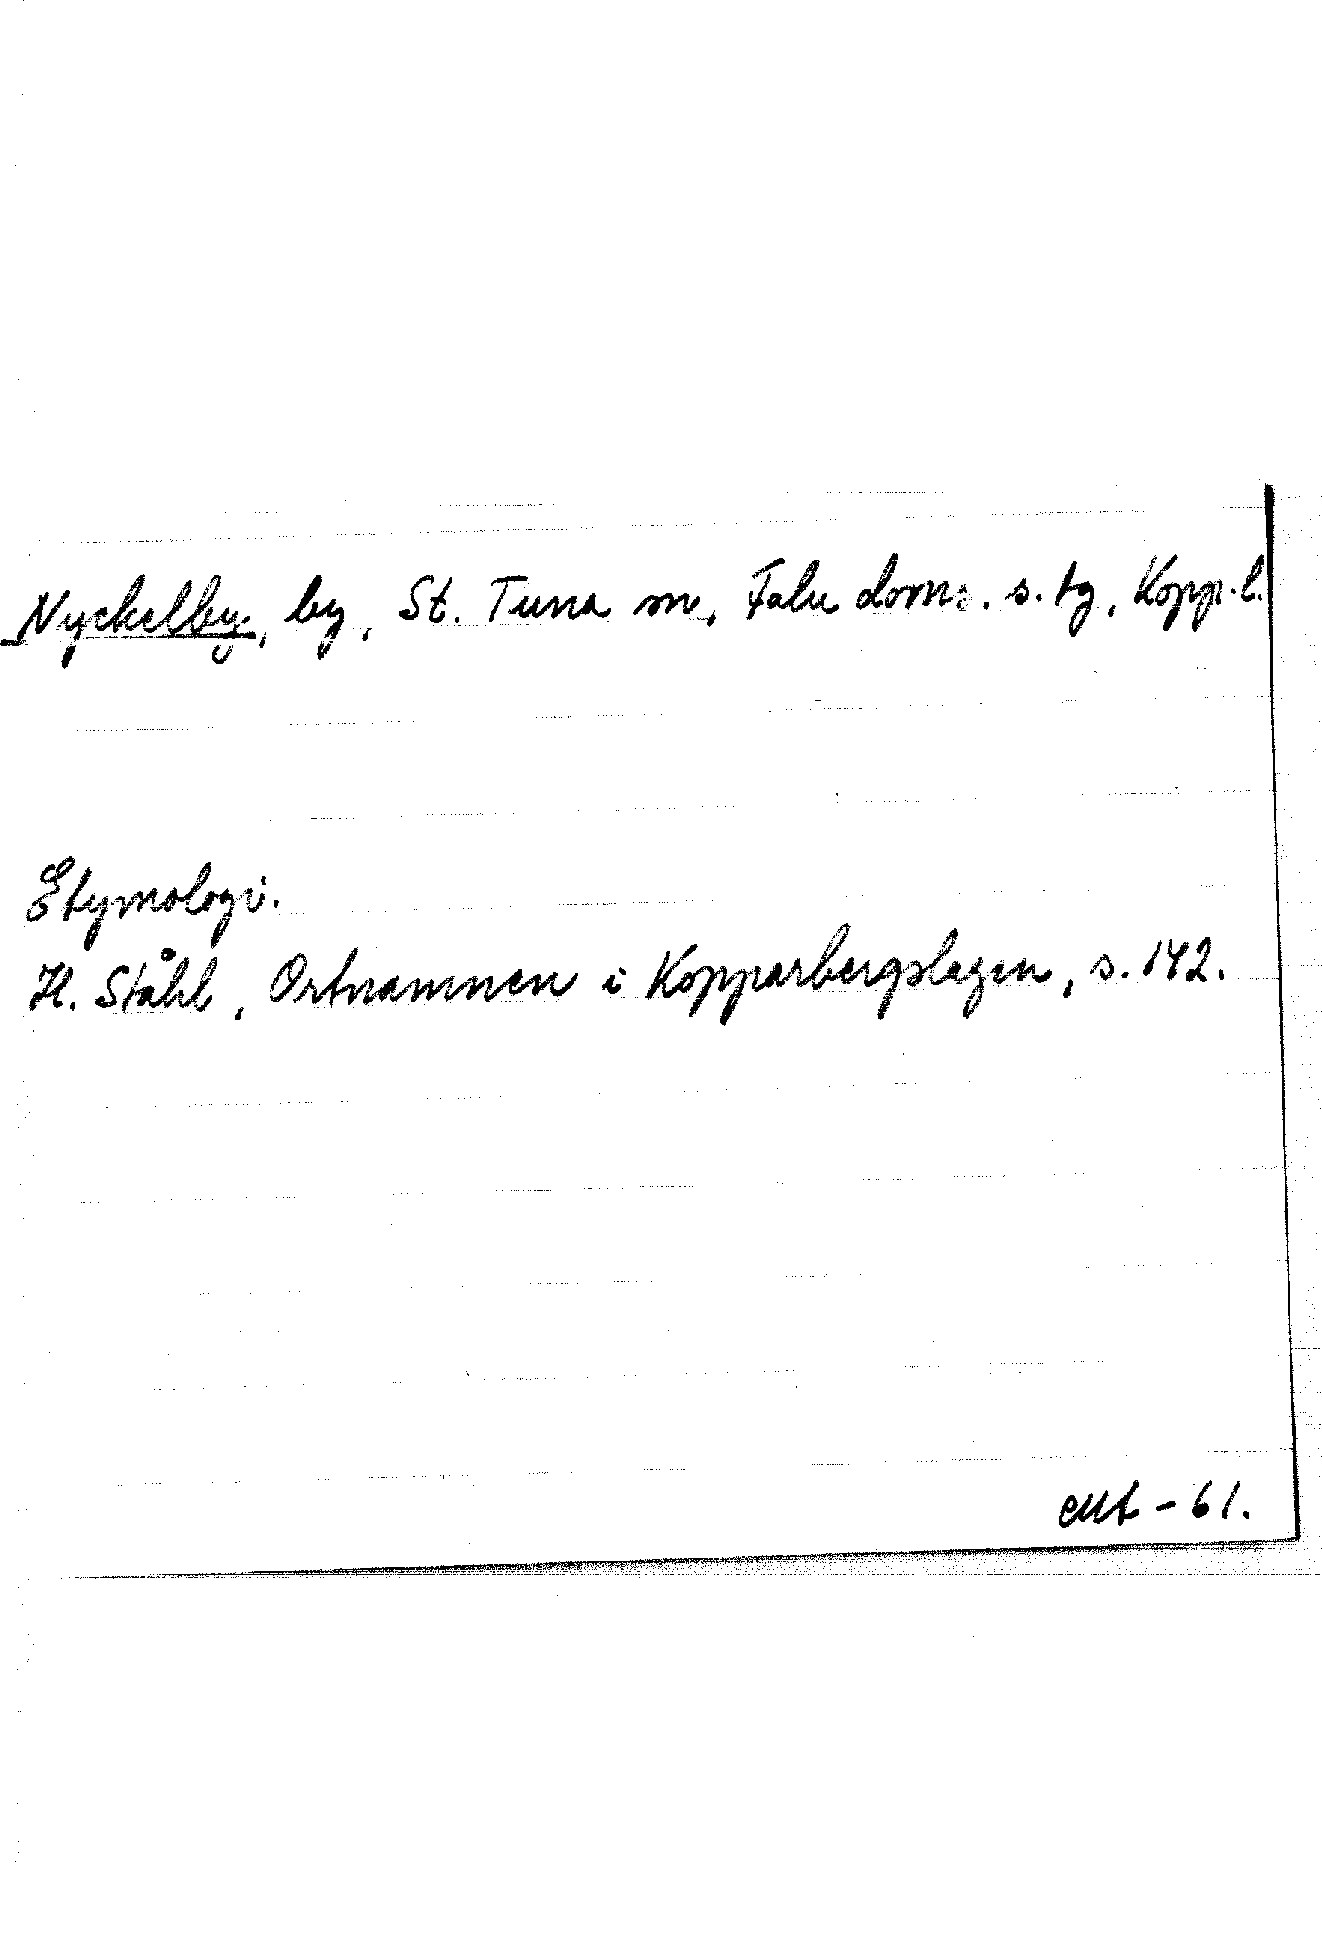 Nyckelby, by, St. Tuna sn, Falu doms. s. tg, Kopp. l.
Etymologi.
H. Ståhl, Ortnamnen i Kopparbergslagen, s. 142.
- 61.